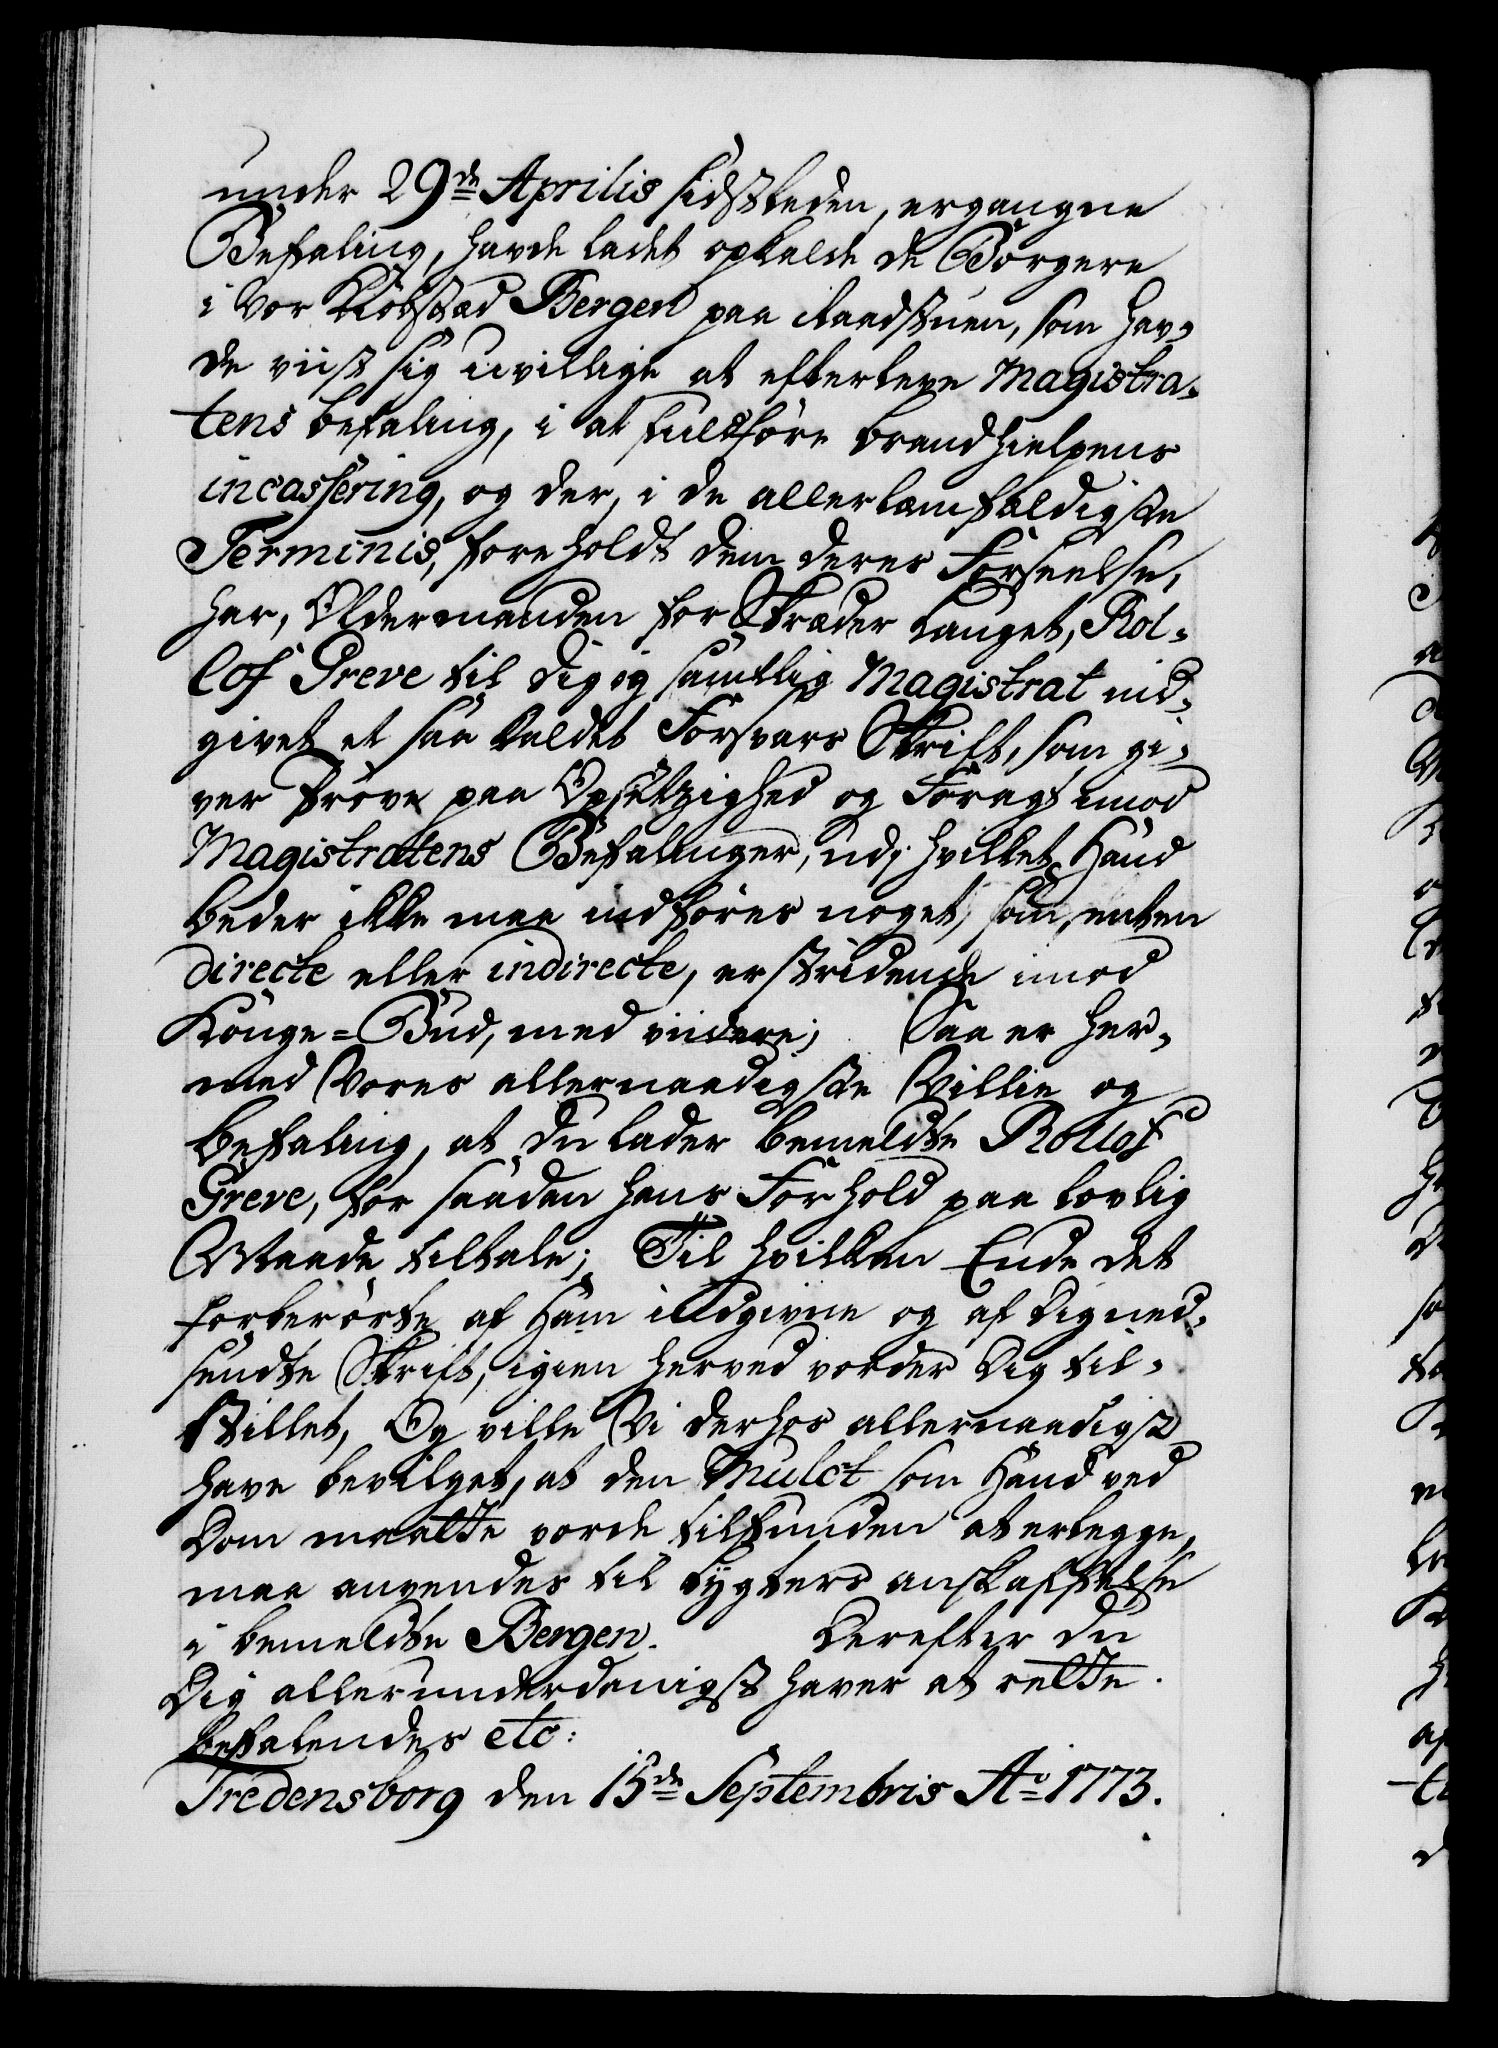 under 29de Aprilis sidstleden, ergangne
Befaling, havde ladet opkalde de Borgere
i Vor Kiøbstæd Bergen paa Raadstuen, som hav-
de viist sig uvillige at efterleve Magistra-
tens befaling, i at fuldføre brandhielpens
incassering, og der, i de allerlemfældigste
Terminis, foreholdt dem deres Forseelse,
har, Oldermanden for Skræder Lauget, Rol-
lof Greve til dig og samtlig Magistrat ind-
givet et saa kaldet Forsvars Skrift, som gi-
ver Prøve paa Opsetzighed og Foragt imod
Magistratens Befalinger, udj hvilket Hand
beder ikke maa indføres noget, som, enten
directe eller indirecte, er stridende imod
Konge-Bud, med viidere; Saa er her-
med Vores allernaadigste Villie og
befaling, at du lader bemeldte Rollof
Greve, for saadan hans Forhold paa lovlig
Maade tiltale; Til hvilken Ende det
forberørte af Ham indgivne og af Dig ned-
sendte Skrift, igien herved vorder Dig til-
stillet, Og ville Vi derhos allernaadigst
have bevilget, at den Mulct som Hand ved
Dom maatte vorde tilfunden at erlegge,
maa anvendes til Sygters anskaffelse
i bemeldte Bergen. Derefter du
Dig allerunderdanigst haver at rette.
befalendes etc:
Fredensborg den 15de Septembris Ao 1773.